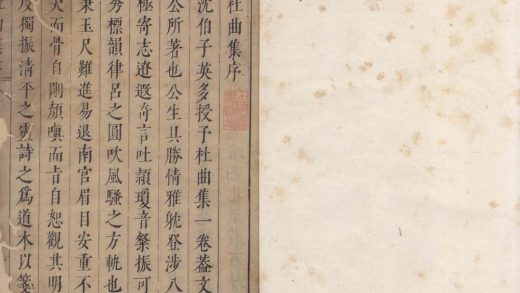 杜曲集序
沈伯子英多授予杜曲集一卷葢文
公所著也公生具勝情雅躭登涉八
極寄志遼遐奇言吐頴瓊音粲振可
標韻律呂之圓吹風騷之方軌也
秉玉尺難進易退南宮眉目安重不
而骨自剛顔嗔而自恕觀其明
獨振清平之詩之爲道木以箋